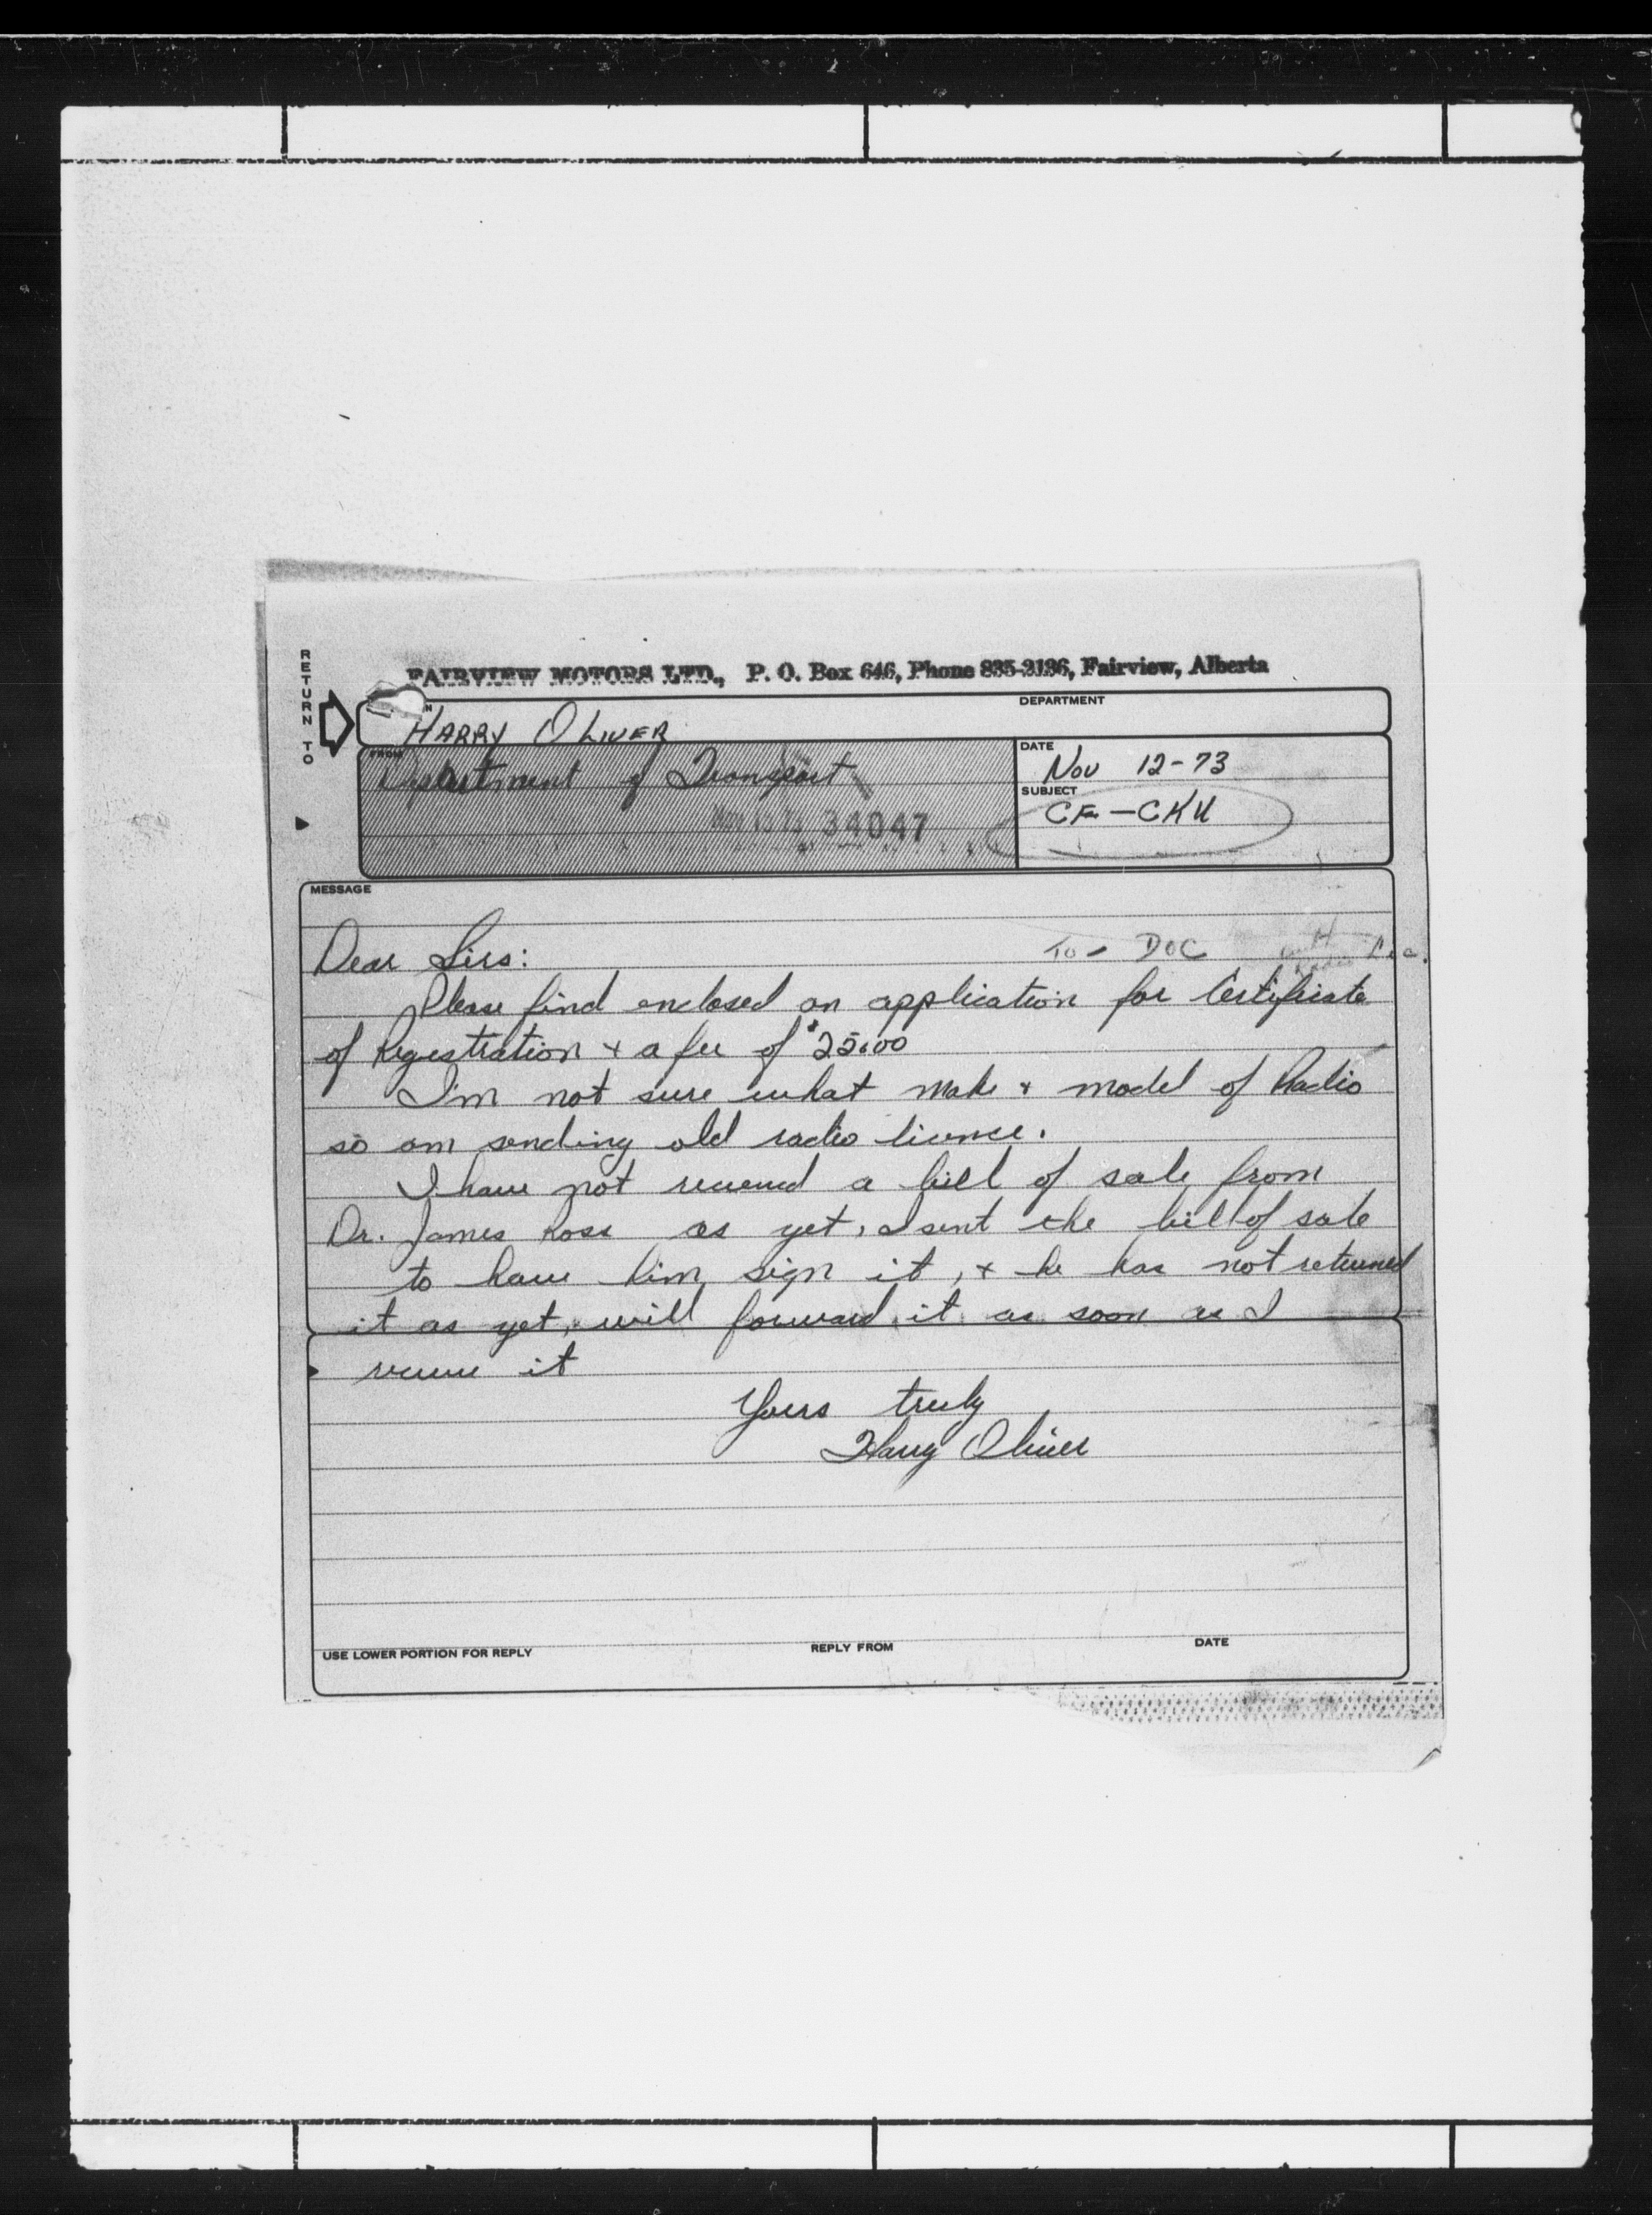 FAIRVIEW MOTORS LTD., P. O. Box 646, Phone 835-2136, Fairview, Alberta
RETURN TO
DEPARTMENT
HARRY OLIVER
FROM
Department of Transport
DATE
Nov 12-73
SUBJECT
CF-CKU
34047
MESSAGE
To - DOC with radio Lic.
Dear Sirs:
Please find enclosed an application for Certificate
of Registration + a fee of $25.00
I'm not sure what make + model of Radio
so am sending old radio licence.
I have not received a bill of sale from
Dr. James Ross as yet, I sent the bill of sale
to have him sign it, + he has not returned
it as yet, will forward it as soon as I
receive it
Yours truly
Harry Oliver
USE LOWER PORTION FOR REPLY REPLY FROM DATE